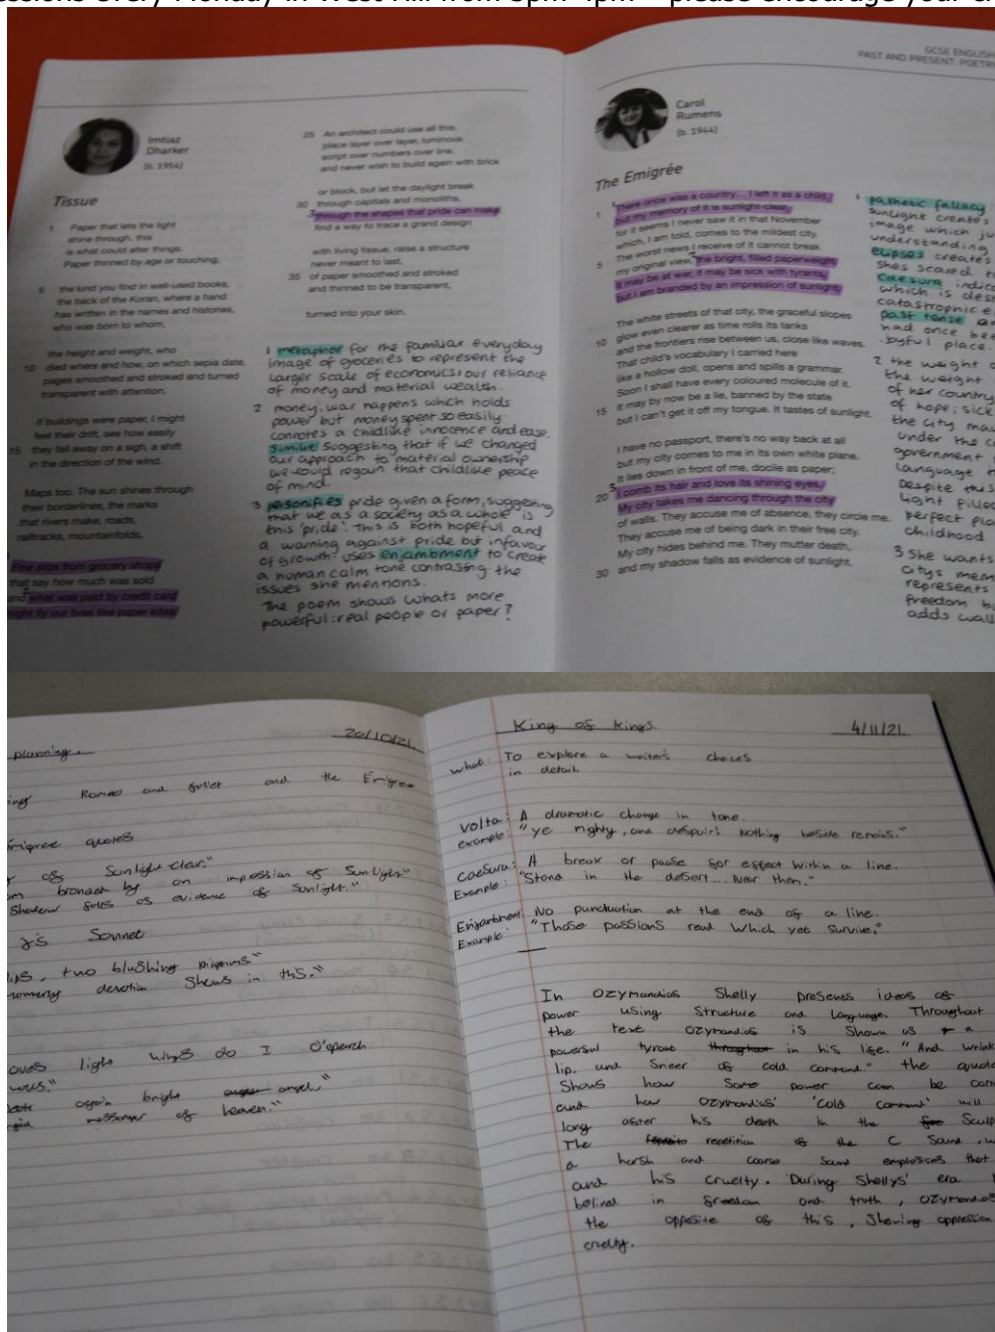 essions every Monday in West Hill from 3pm-4pm – please encourage your c
GCSE ENGLISH
PAST AND PRESENT: POETRY
Imtiaz
Dharker
(b. 1954)
Tissue
1 Paper that lets the light
shine through, this
is what could alter things.
Paper thinned by age or touching,
5 the kind you find in well-used books,
the back of the Koran, where a hand
has written in the names and histories,
who was born to whom,
the height and weight, who
10 died where and how, on which sepia date,
pages smoothed and stroked and turned
transparent with attention.
If buildings were paper, I might
feel their drift, see how easily
15 they fall away on a sigh, a shift
in the direction of the wind.
Maps too. The sun shines through
their borderlines, the marks
that rivers make, roads,
railtracks, mountainfolds,
Fine slips from grocery shops
that say how much was sold
and what was paid by credit card
might fly our lives like paper kites.
25 An architect could use all this,
place layer over layer, luminous
script over numbers over line,
and never wish to build again with brick
or block, but let the daylight break
30 through capitals and monoliths,
3 through the shapes that pride can make,
find a way to trace a grand design
with living tissue, raise a structure
never meant to last,
35 of paper smoothed and stroked
and thinned to be transparent,
turned into your skin.
1 metaphor for the familiar everyday
image of groceries to represent the
larger scale of economics: our reliance
of money and material wealth.
2 money, war happens which holds
power but money spent so easily
connotes a childlike innocence and ease.
Simile suggesting that if we changed
our approach to material ownership
we could regain that childlike peace
of mind.
3 personifies pride given a form, suggesting
that we as a society as a whole is
this 'pride'. This is both hopeful and
a warning against pride but infavour
of growth. uses enjambment to create
a human calm tone contrasting the
issues she mentions.
The poem shows whats more
powerful: real people or paper?
Carol
Rumens
(b. 1944)
The Emigrée
1 There once was a country... I left it as a child
but my memory of it is sunlight-clear
for it seems I never saw it in that November
which, I am told, comes to the mildest city.
The worst news I receive of it cannot break
5 my original view, 2 the bright, filled paperweight.
It may be at war, it may be sick with tyrants,
but I am branded by an impression of sunlight.
The white streets of that city, the graceful slopes
10 glow even clearer as time rolls its tanks
and the frontiers rise between us, close like waves.
That child's vocabulary I carried here
like a hollow doll, opens and spills a grammar.
Soon I shall have every coloured molecule of it.
15 It may by now be a lie, banned by the state
but I can't get it off my tongue. It tastes of sunlight.
I have no passport, there's no way back at all
but my city comes to me in its own white plane.
It lies down in front of me, docile as paper;
20 3 I comb its hair and love its shining eyes.
My city takes me dancing through the city
of walls. They accuse me of absence, they circle me.
They accuse me of being dark in their free city.
My city hides behind me. They mutter death,
30 and my shadow falls as evidence of sunlight.
1 pathetic fallacy
sunlight creates
image which ju
understanding
elipses creates
shes scared t
Caesura indic
which is des
catastrophic e
past tense a
had once bee
joyful place.
2 the weight o
the weight
of her country
of hope; sick
the city ma
under the c
government
language
Despite this
light filled
perfect pla
childhood
3 She wants
citys mem
represents
freedom b
adds wall
planning. 20/10/21.
ing Romeo and Juliet and the Emigree
migree quotes
y of Sunlight-clear."
am branded by an impession of Sunlight"
Shadow falls as evidence of Sunlight."
J's Sonnet
lips, two blushing pilgrims"
mannerly devotion Shows in this."
oves light wings do I O'eperch
again bright angel,"
messanger of heaven."
King of kings. 4/11/21.
what: To explore a writer's choices
in detail.
Volta: A dramatic change in tone.
example: "ye mighty, and despair! Nothing beside remains."
Caesura: A break or pause for effect within a line.
Example: "Stand in the desert... Near them,"
Enjambment: No punctuation at the end of a line.
Example: "Those passions read Which yet Survive,"
In Ozymandias Shelly presents ideas of
power using Structure and Language. Throughout
the text Ozymandias is Shown as a
powerful tyrant throughout in his life. "And wrink
lip, and Sneer of cold command." the quote
Shows how Some power can be corr
and how Ozymandias' 'cold command' will
long after his death in the Sculp
The repetition of the C Sound, w
a harsh and coarse Sound emphasises that
and his cruelty. During Shellys' era
belived in freedom and truth, Ozymandias
the opposite of this, Showing oppression
cruelty.